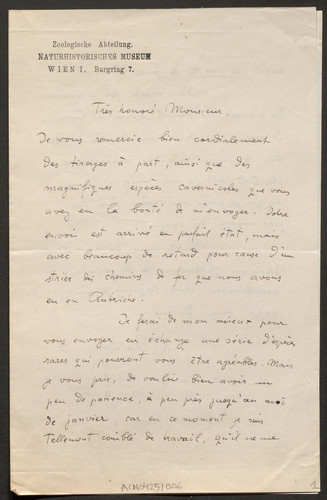 Zoologische Abteilung.
NATURHISTORISCHES MUSEUM
WIEN I. Burgring 7.
Très honoré Monsieur,
Je vous remercie bien cordialement
des tirages à part, ainsi que des
magnifiques espèces cavernicoles que vous
avez eu la bonté de m'envoyer. Votre
envoi est arrivé en parfait état, mais
avec beaucoup de retard pour cause d'un
strike des chemins de fer que nous avons
eu en Autriche.
Je ferai de mon mieux pour
vous envoyer en échange une série d'espèces
rares qui pourront vous être agréables. Mais
je vous prie, de vouloir bien avoir un
peu de patience à peu près jusqu'au mois
de janvier, car en ce moment je suis
tellement comblé de travail, qu'il ne me
ACM0425/006
1